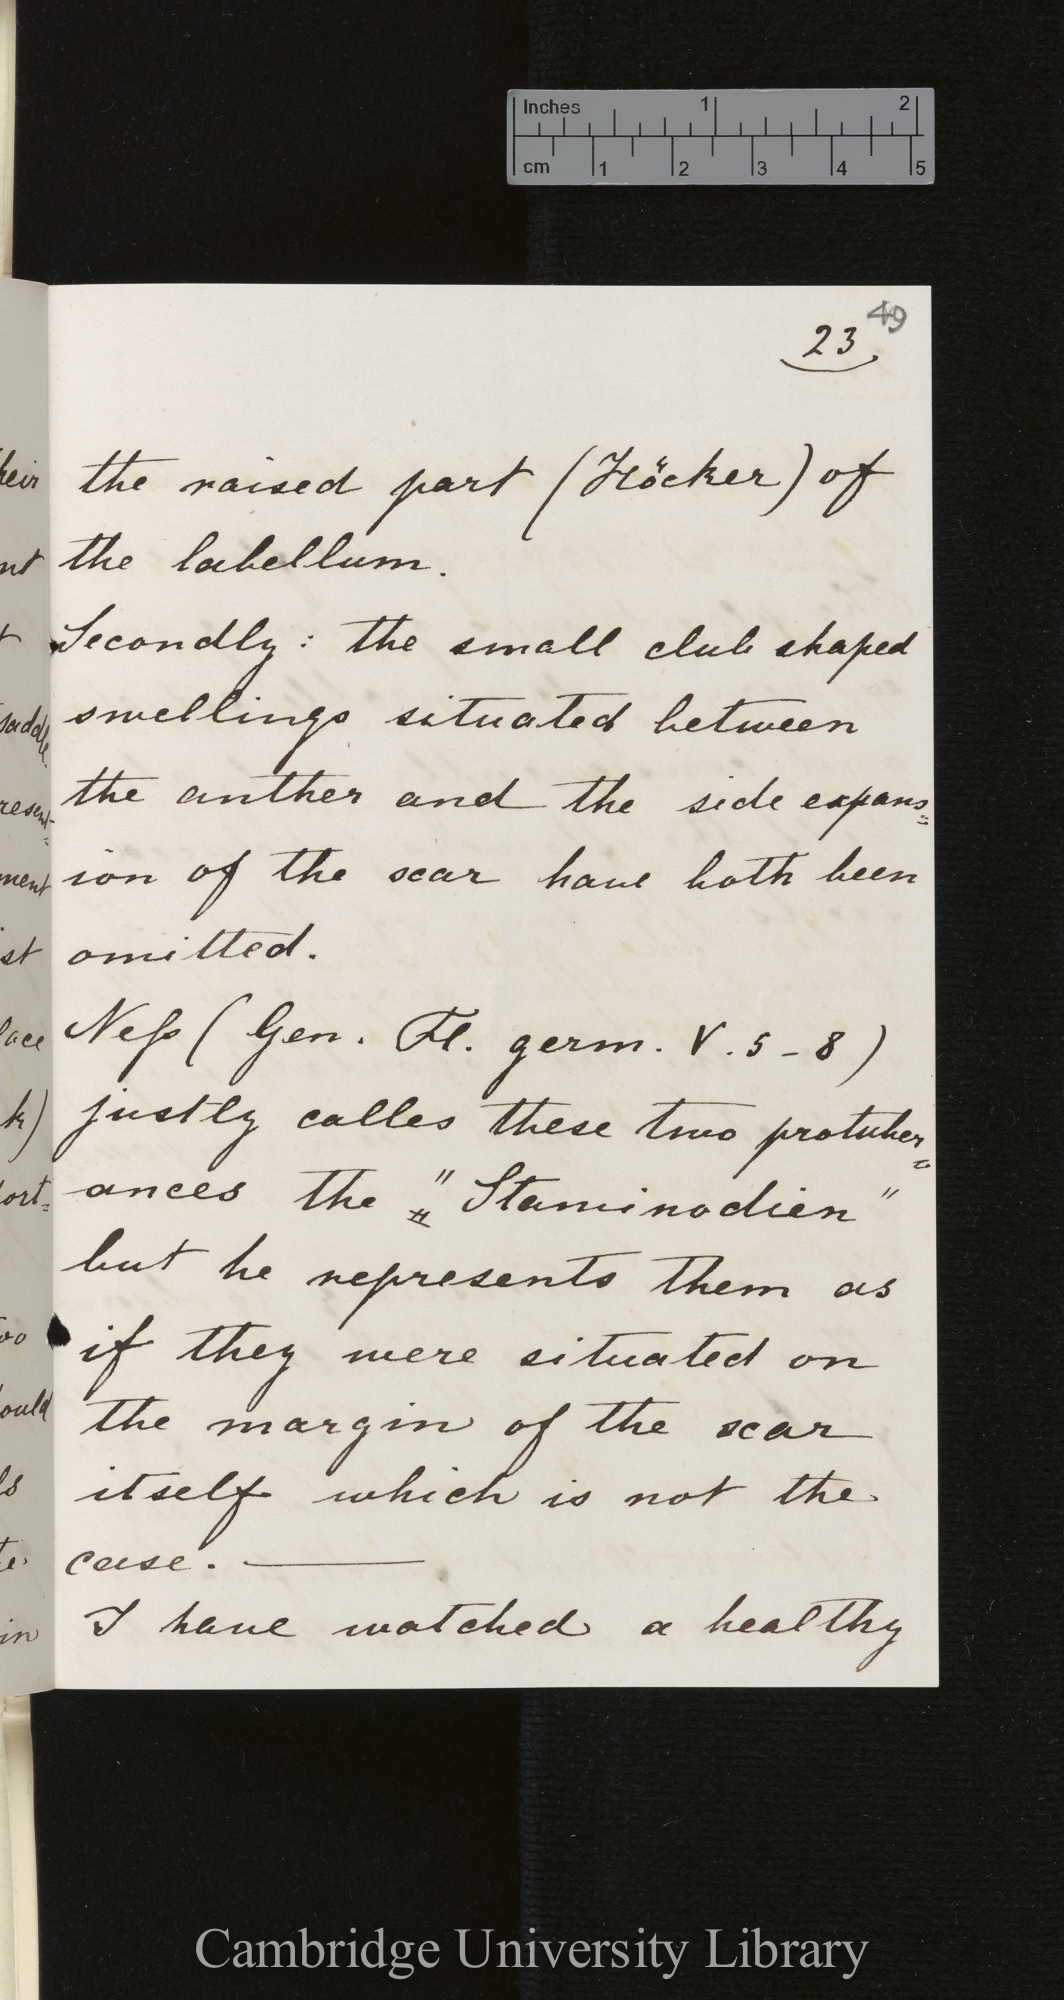 Inches 1 2
cm 1 2 3 4 5
49
23
the raised part (Höcker) of
the labellum.
Secondly: the small club shaped
swellings situated between
the anther and the side expans=
ion of the scar have both been
omitted.
Neſs (Gen. Fl. germ. V. 5-8)
justly calles these two protuber=
ances the "Staminodien"
but he represents them as
if they were situated on
the margin of the scar
itself which is not the
case. —
I have watched a healthy
heir
nt
t
saddle.
resent=
ment
st
lace
k)
ort=
oo
ould
ls
te
in
Cambridge University Library